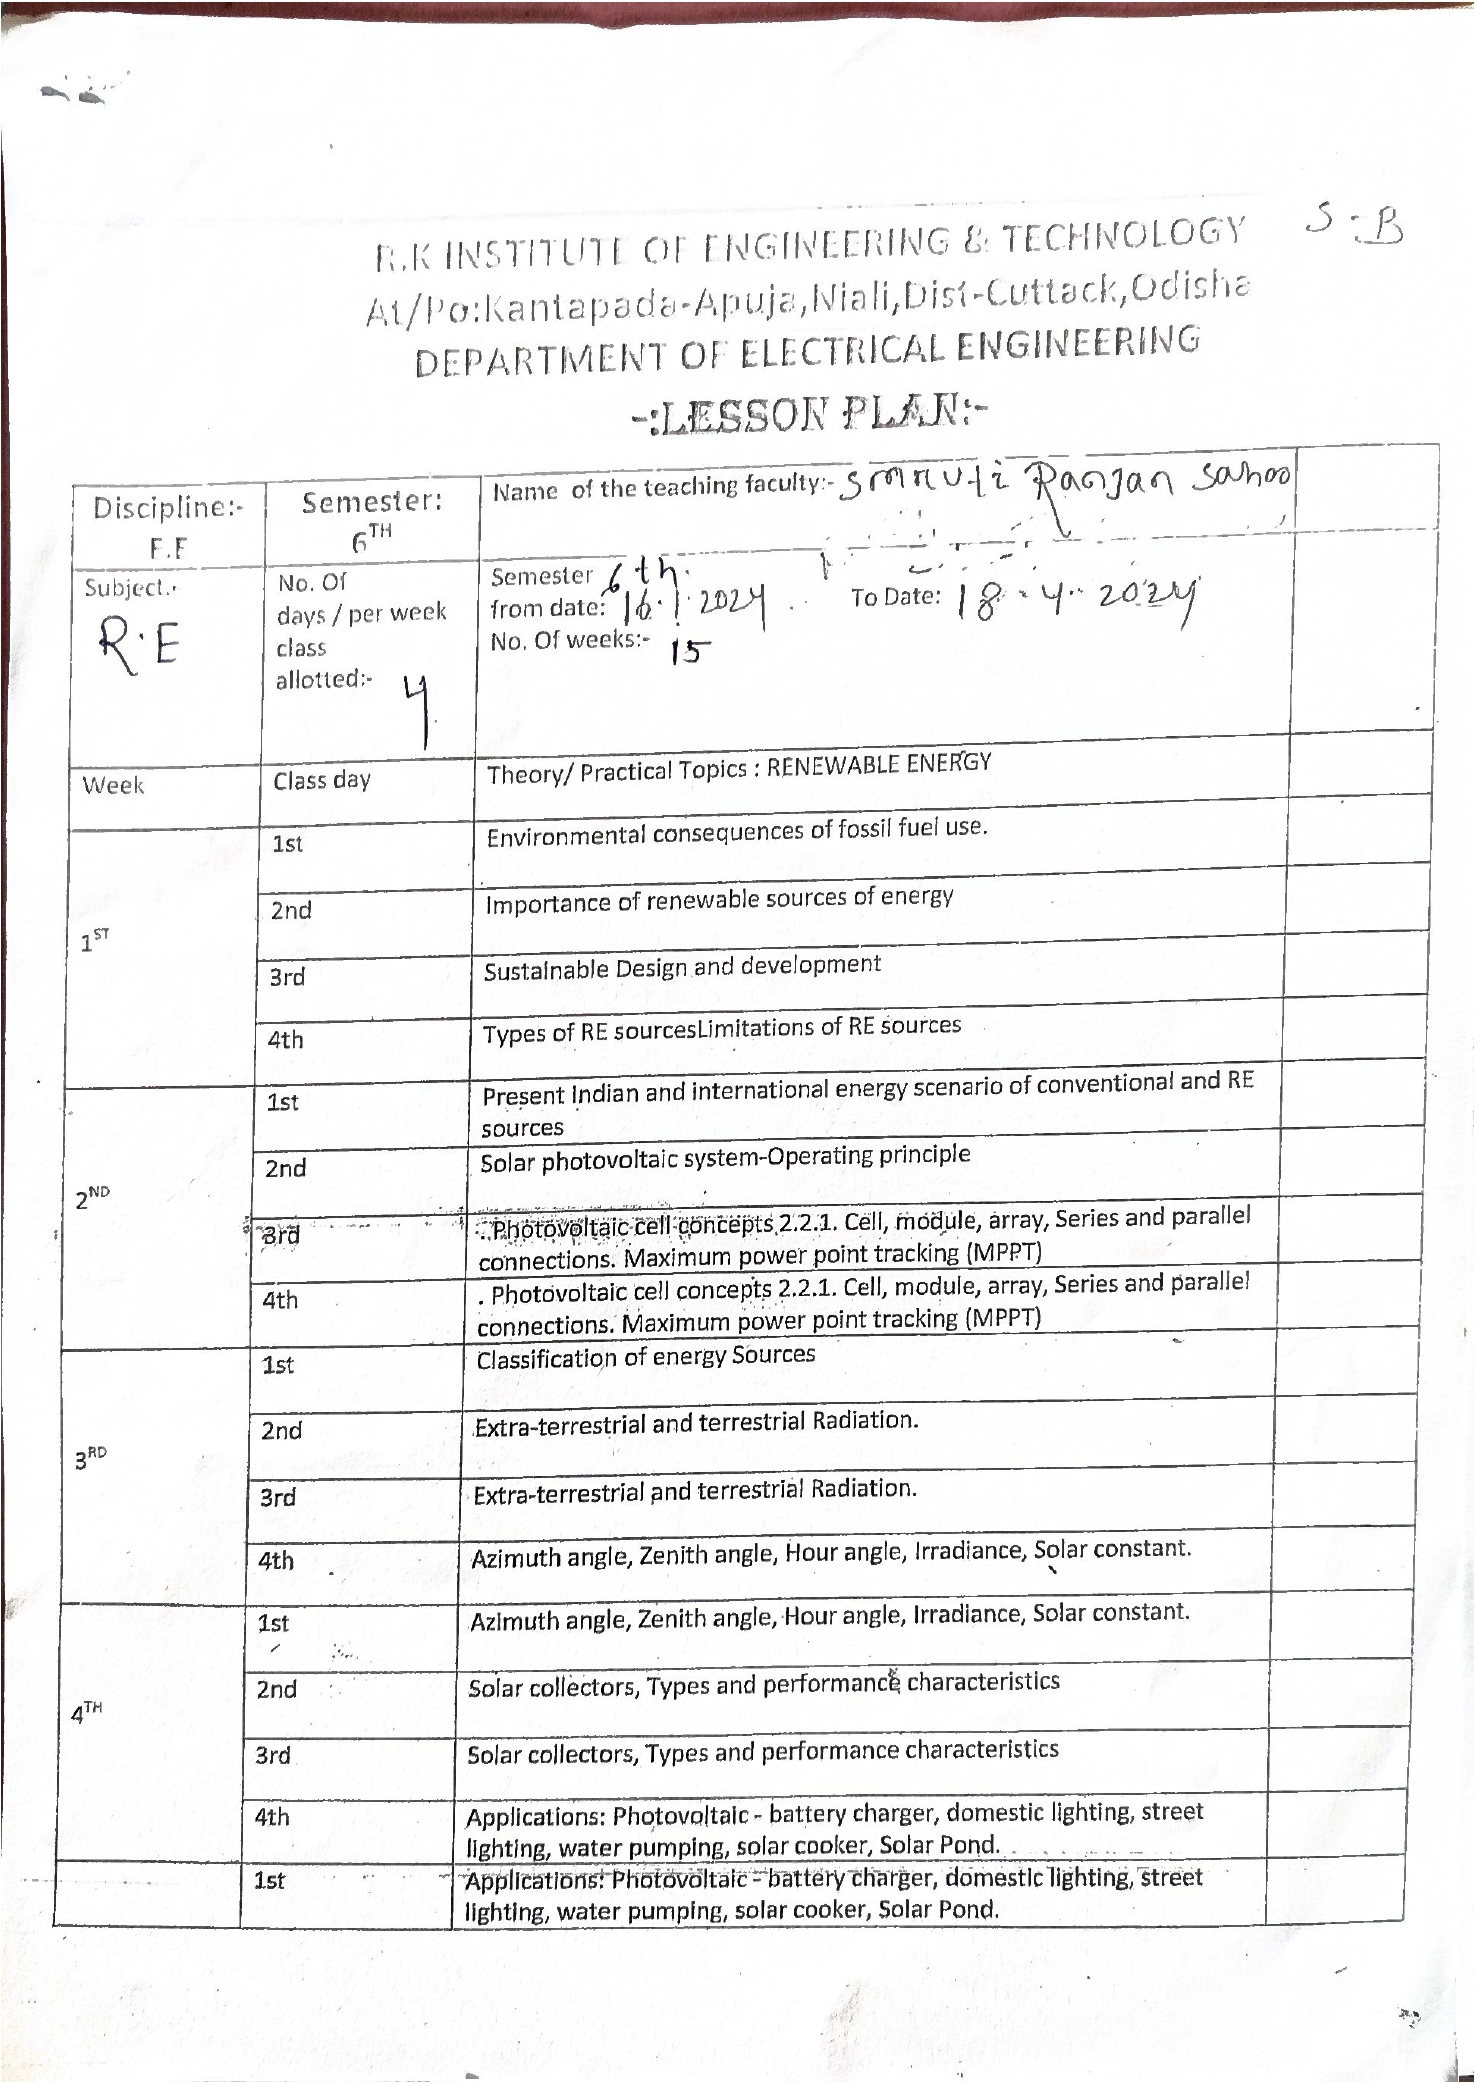 S-B
R.K INSTITUTE OF ENGINEERING & TECHNOLOGY
At/Po:Kantapada-Apuja,Niali,Dist-Cuttack,Odisha
DEPARTMENT OF ELECTRICAL ENGINEERING
-:LESSON PLAN:-
Discipline:-
E.E
Semester:
6TH
Name of the teaching faculty:- Smruti Ranjan Sahoo
Subject:-
R.E
No. Of
days / per week
class
allotted:- 4
Semester 6th.
from date: 16.1.2024 To Date: 18-4-2024
No. Of weeks:- 15
Week
Class day
Theory/ Practical Topics : RENEWABLE ENERGY
1ST
1st
Environmental consequences of fossil fuel use.
2nd
Importance of renewable sources of energy
3rd
Sustainable Design and development
4th
Types of RE sourcesLimitations of RE sources
2ND
1st
Present Indian and international energy scenario of conventional and RE
sources
2nd
Solar photovoltaic system-Operating principle
3rd
. Photovoltaic cell concepts 2.2.1. Cell, module, array, Series and parallel
connections. Maximum power point tracking (MPPT)
4th
. Photovoltaic cell concepts 2.2.1. Cell, module, array, Series and parallel
connections. Maximum power point tracking (MPPT)
3RD
1st
Classification of energy Sources
2nd
Extra-terrestrial and terrestrial Radiation.
3rd
Extra-terrestrial and terrestrial Radiation.
4th
Azimuth angle, Zenith angle, Hour angle, Irradiance, Solar constant.
4TH
1st
Azimuth angle, Zenith angle, Hour angle, Irradiance, Solar constant.
2nd
Solar collectors, Types and performance characteristics
3rd
Solar collectors, Types and performance characteristics
4th
Applications: Photovoltaic - battery charger, domestic lighting, street
lighting, water pumping, solar cooker, Solar Pond.
1st
Applications: Photovoltaic - battery charger, domestic lighting, street
lighting, water pumping, solar cooker, Solar Pond.